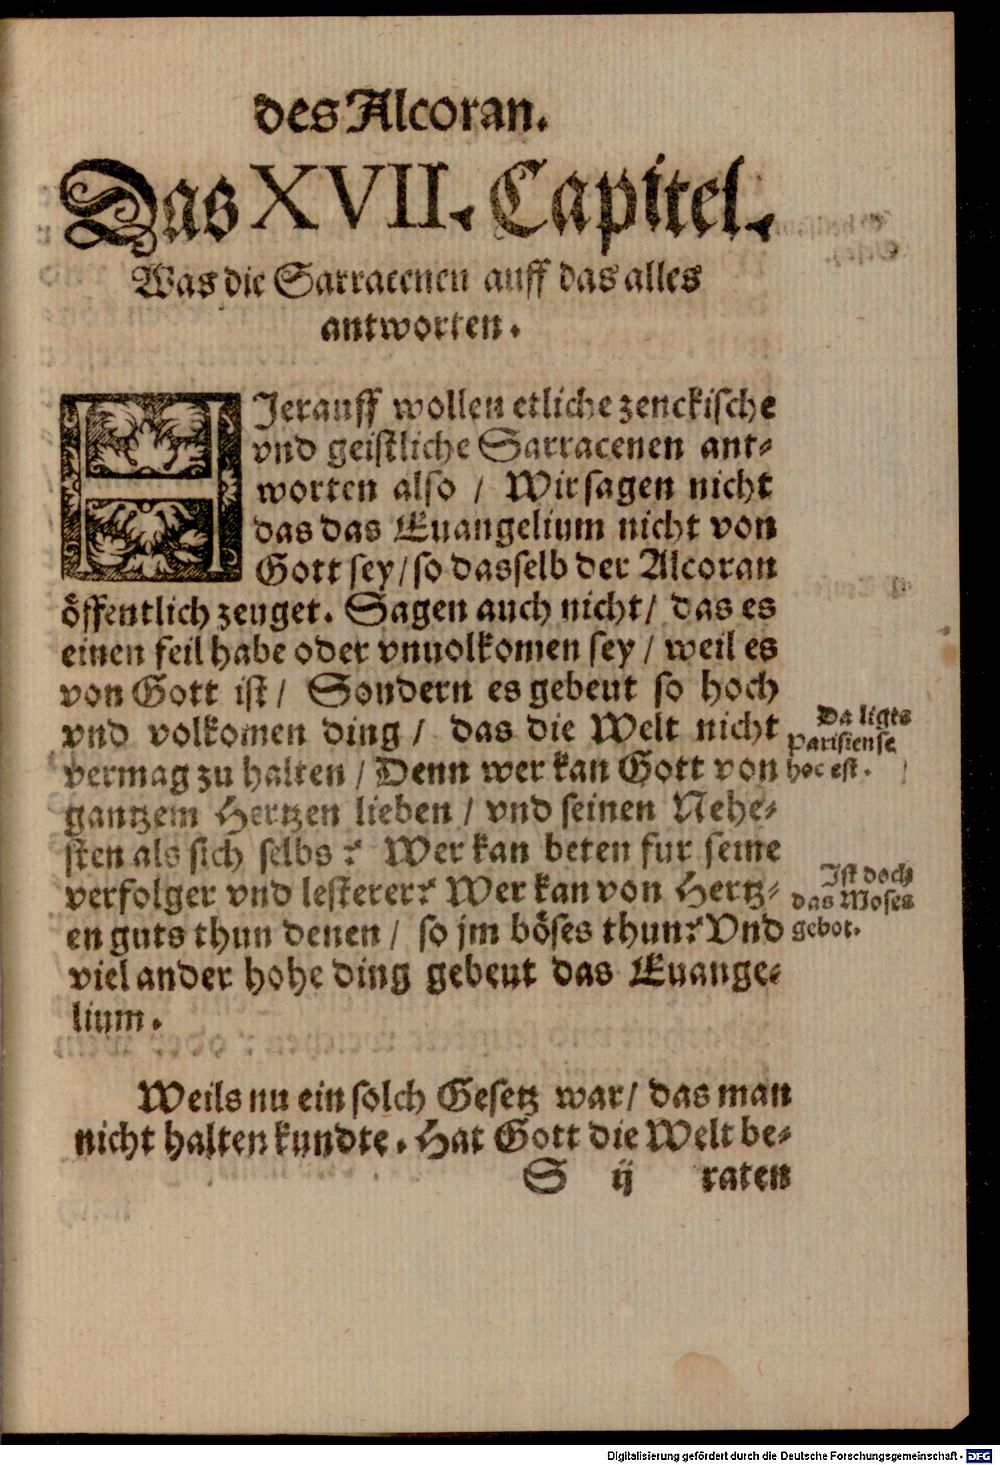 des Alcoran.
Das XVII. Capitel.
Was die Sarracenen auff das alles
antworten.
HIerauff wollen etliche zenckische
vnd geistliche Sarracenen ant-
worten also / Wir sagen nicht
das das Euangelium nicht von
Gott sey / so dasselb der Alcoran
öffentlich zeuget. Sagen auch nicht / das es
einen feil habe oder vnuolkomen sey / weil es
von Gott ist / Sondern es gebeut so hoch
vnd volkomen ding / das die Welt nicht
vermag zu halten / Denn wer kan Gott von
gantzem Hertzen lieben / vnd seinen Nehe-
sten als sich selbs? Wer kan beten fur seine
verfolger vnd lesterer? Wer kan von Hertz-
en guts thun denen / so jm böses thun? Vnd
viel ander hohe ding gebeut das Euange-
lium.
Da ligts
Parisiense
hoc est.
Ist doch
das Moses
gebot.
Weils nu ein solch Gesetz war / das man
nicht halten kundte. Hat Gott die Welt be-
S ij raten
Digitalisierung gefördert durch die Deutsche Forschungsgemeinschaft - DFG